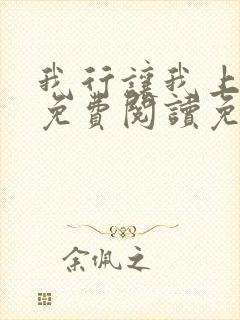 我行讓我上
免費閱讀免
余佩之